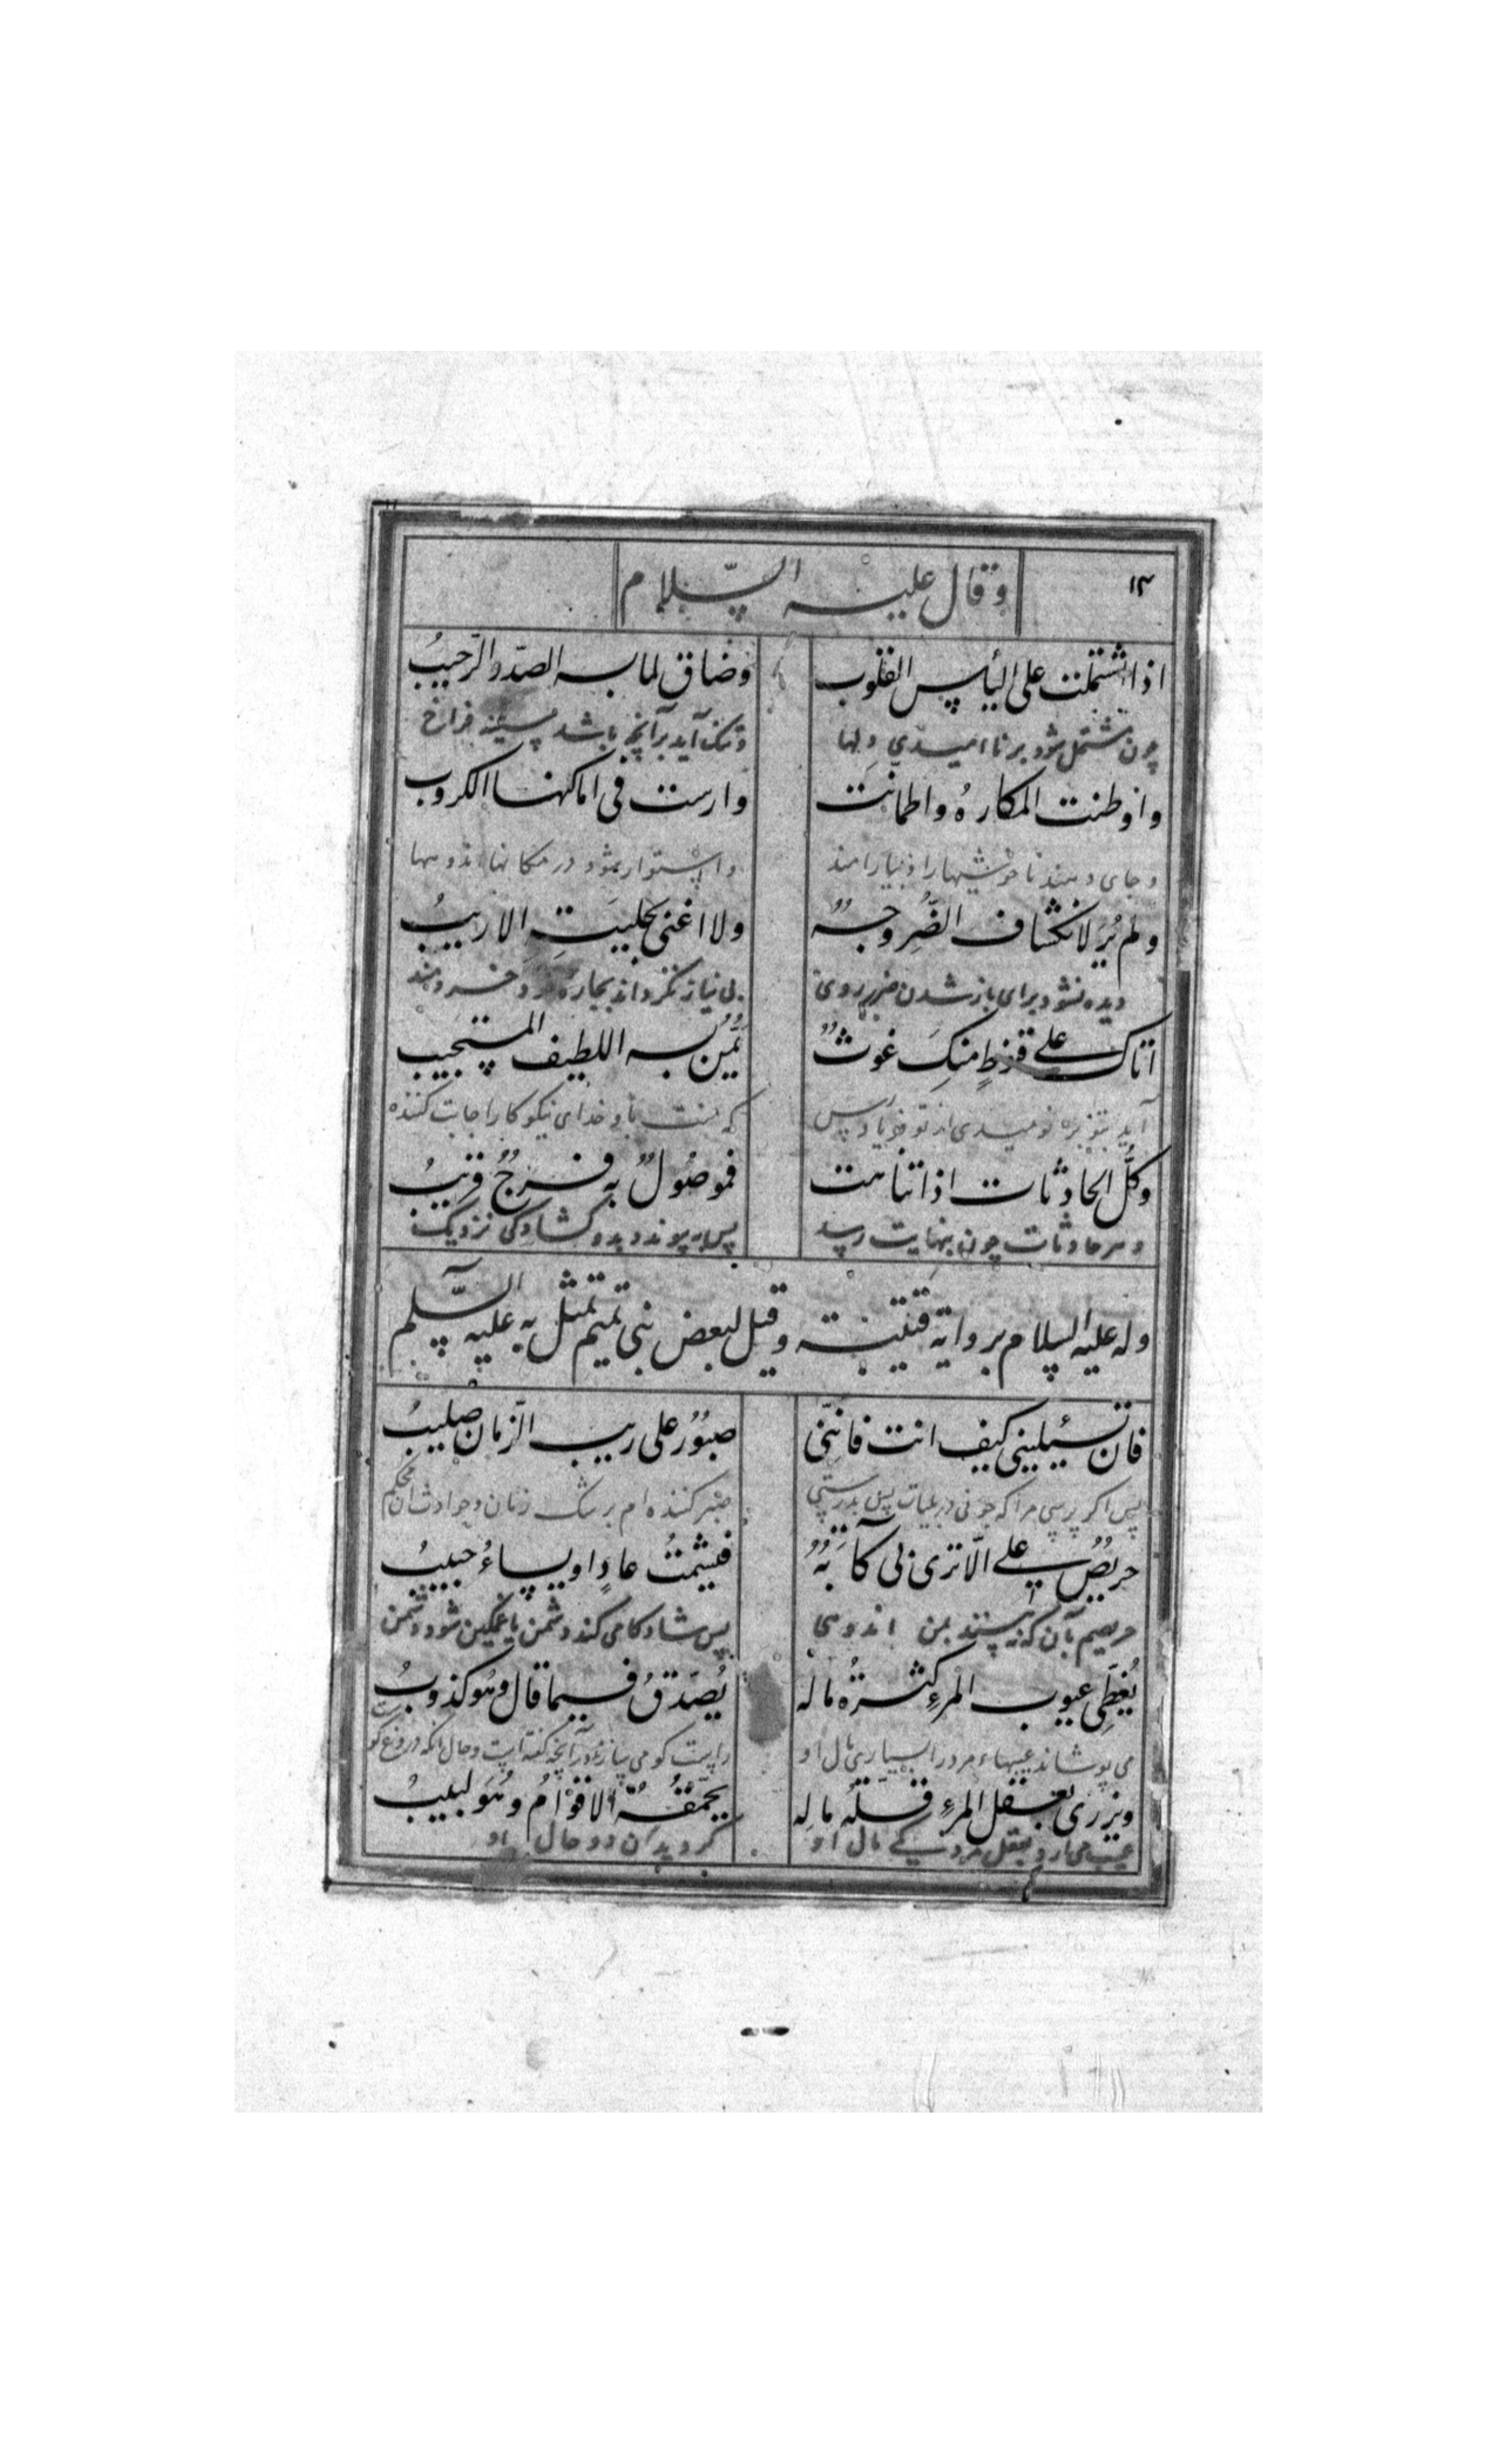 ١٣
وقال عليه السّلام
اذا اشتملت على اليأس القلوب وضاق لما به الصدر الرّحيبُ
چون مشتمل شود بر نا اميدي دلها وتنك آيد برآنچه باشد سينه فراخ
واوطنت المكارهُ واطمأنت وارست في اماكنها الكروب
وجاى دهند ناخوشيها را واستوار بشود در مكانها اندوهها
ولم يُرَ لانكشاف الضُّر وجهٌ ولا اغنى بحليتِه الاريبُ
ديده نشود براى باز شدن ضرر روى بى نياز نكرداند بچاره خود خردمند
اتاك على قنوطٍ منكَ غوثٌ يَمُنّ به اللطيف المستجيب
آيد بتو بر نوميدى از تو فريادرس كه منت با و خداى نيكوكار اجابت كننده
وكلّ الحادثات اذا تناهت فموصُولٌ به فرجٌ قريبُ
و هر حادثات چون بنهايت رسد پس به پيوندد بدو كشادكى نزديك
وله عليه السلام برواية قتيبة وقيل لبعض بني تميم تمثل به عليه السّلم
فان تسئيلينى كيف انت فانّنى صبُورٌ على ريب الزّمان صليبُ
پس اكر پرسى مرا كه چونى در بليات پس بدرستى صبر كننده ام بر شك زمان وحوادث آن محكم
حريصٌ على الّا ترى بى كآبةٌ فيشمتُ عادٍ او يساءُ حبيبُ
حريصم بآن كه نه بينند بمن اندوهى پس شادكامى كند دشمن يا غمكين شود دشمن
يُغطّى عيوب المرءِ كثرةُ ماله يُصدّقُ فيما قال وهُو كذوبُ
مى پوشاند عيبهاء مرد را بسيارى مال او راست كو مى سازند در آنچه كفته است وحال آنكه دروغ كوست
ويزرى بعقل المرءِ قلّةُ ماله يحمّقهُ الاقوامُ وهُوَ لبيبُ
عيب مى آرد بعقل مرد كمى مال او